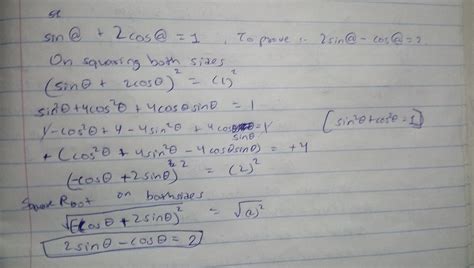 sinθ + 2cosθ = 1 , To prove :- 2sinθ - cosθ = 2.
On squaring both sizes
(sinθ + 2cosθ)² = (1)²
sin²θ + 4cos²θ + 4cosθsinθ = 1
1 - cos²θ + 4 - 4sin²θ + 4cosθ sinθ = 1 [sin²θ + cos²θ = 1]
+ (cos²θ + 4sin²θ - 4cosθsinθ) = +4
(-cosθ + 2sinθ)² = (2)²
Square Root on bothsizes
√(-cosθ + 2sinθ)² = √(2)²
2sinθ - cosθ = 2